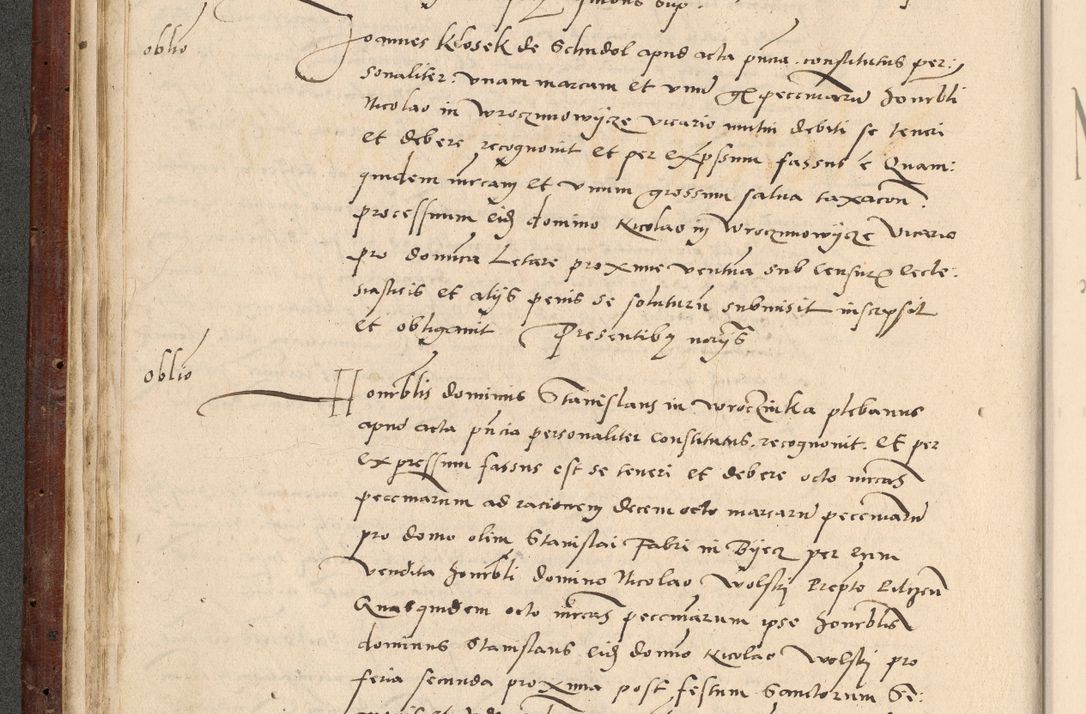 oblio
Joannes Klosek de Schidol apud acta pn̄cia constitutus per:
sonaliter. unam marcam et unū gͬ pecciniarū honorbli
Nicolao in Wroczmowijcze vicario mutui debiti se teneri
et debere recognouit et per expssum fassus ē Quam:
quidem mrcam et unum grossum salua taxacōn
processuum eidͫ domino Nicolao in Wroczmowijcze vicario
pro domīca Letare proxime ventura sub censurͣ eccle:
siasticis et alijs penis se soluturū submisit inscripsit
et obligauit Presentibꝫ norijs
oblio
Honorblis dominus Stanislaus in Wroczinka plebanus
apud acta pn̄cia personaliter constitutus. recognouit. Et per
expressum fassus est se teneri et debere octo mrcas
peccniarum ad racionem decem octo marcarū pecceniarū
pro domo olim Stanislai Fabri in Byecz per eum
vendita honorbli domino Nicolao Wolski
Quasquidem octo mrcas pecceniarum ipse honorblis
dominus Stanislaus eidͫ domīo Nicolao Wolski pro
feria secunda proxima post festum Sanctorum Se: